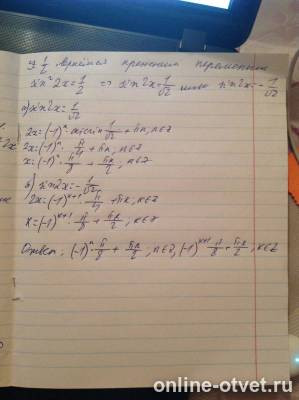 sin²2x = 1/2 => sin2x = 1/√2 или sin2x = -1/√2
а) sin2x = 1/√2
2x = (-1)ⁿ · arcsin 1/√2 + πn, n∈Z
2x = (-1)ⁿ · π/4 + πn, n∈Z
x = (-1)ⁿ · π/8 + πn/2, n∈Z
б) sin2x = -1/√2,
2x = (-1)ᵏ⁺¹ · π/4 + πk, k∈Z
x = (-1)ᵏ⁺¹ · π/8 + πk/2, k∈Z
Ответ: (-1)ⁿ · π/8 + πn/2, n∈Z, (-1)ᵏ⁺¹ · π/8 + πk/2, k∈Z
online-otvet.ru